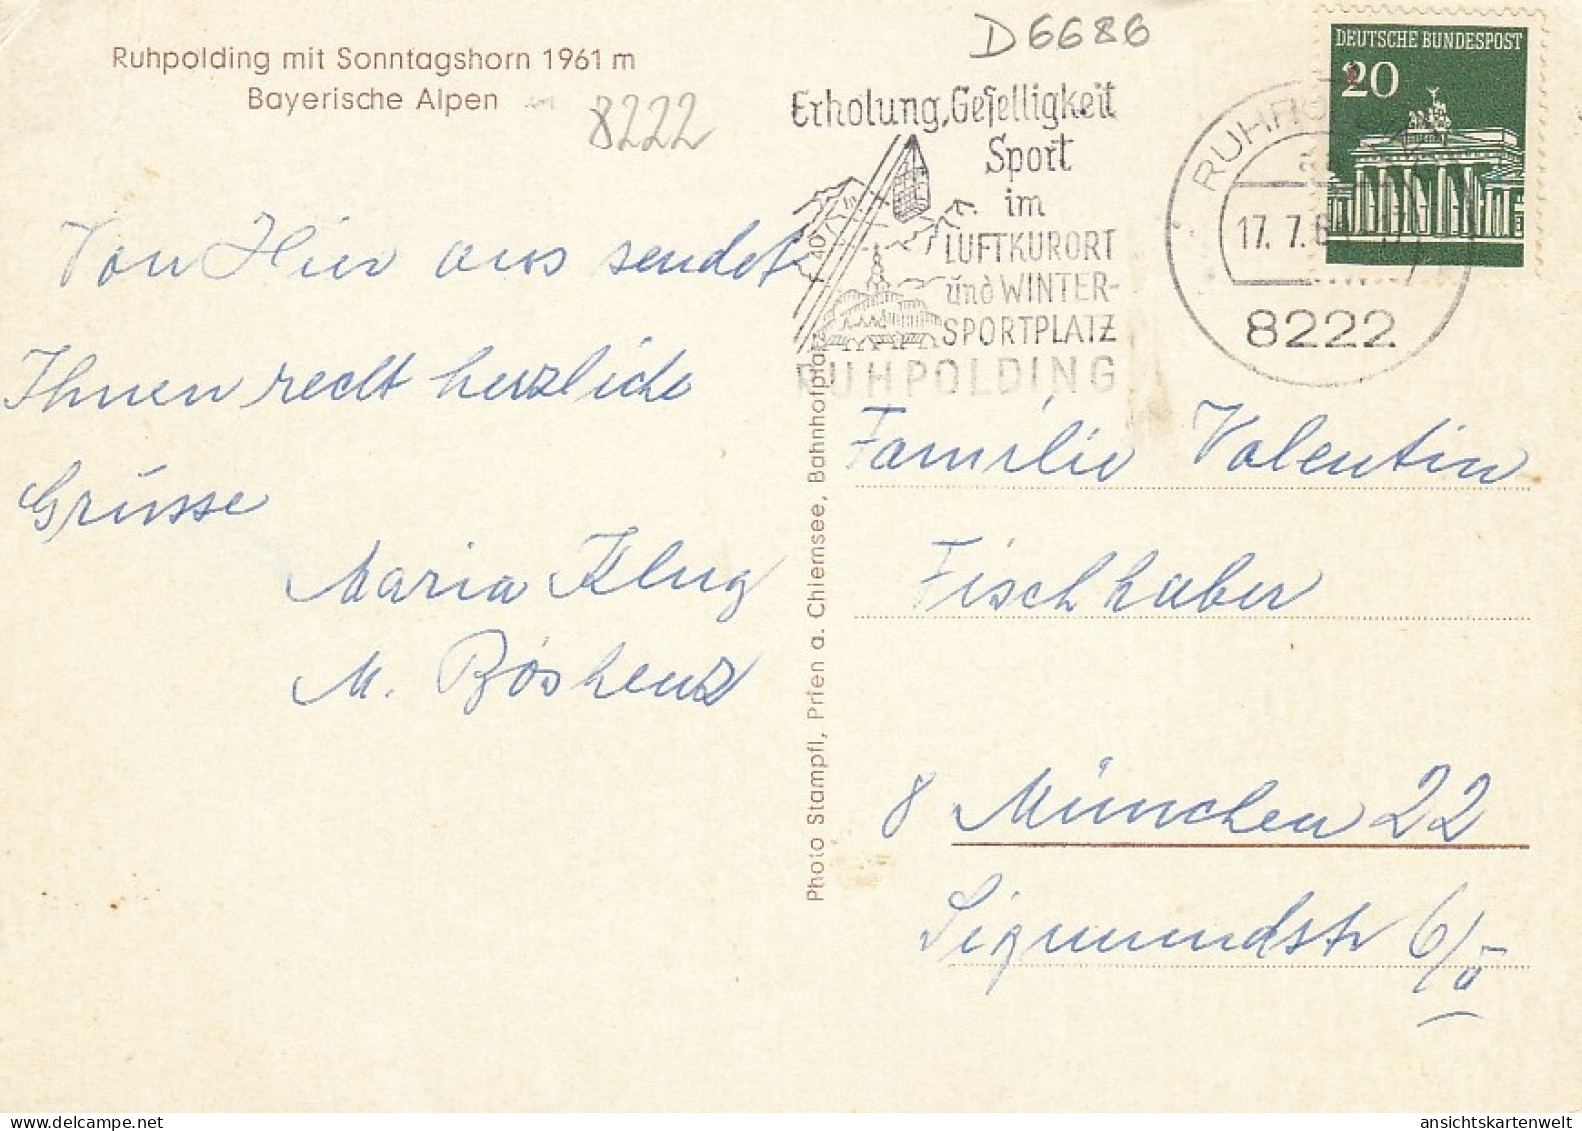 Ruhpolding mit Sonntagshorn 1961 m
Bayerische Alpen
8222
D6686
Von Hier aus sendet
Ihnen recht herzliche
Grüsse
Maria Klug
M.
Photo Stampfl, Prien a. Chiemsee, Bahnhofplatz
40
Erholung, Geselligkeit
Sport
im
LUFTKURORT
und WINTER-
SPORTPLATZ
RUHPOLDING
17. 7. 6
8222
DEUTSCHE BUNDESPOST
20
Familie Valentin
Fischhaber
8 München 22
Sigmundstr 6/
ansichtskartenwelt